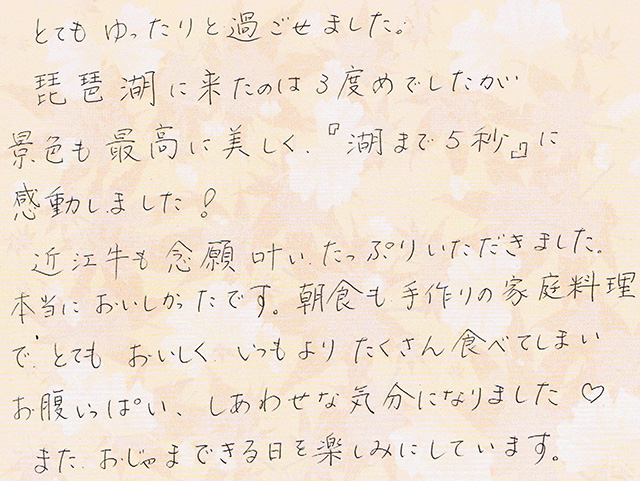 とてもゆったりと過ごせました。
琵琶湖に来たのは3度めでしたが
景色も最高に美しく、『湖まで5秒』に
感動しました!
近江牛も念願叶い、たっぷりいただきました。
本当においしかったです。朝食も手作りの家庭料理
で、とてもおいしく、いつもよりたくさん食べてしまい
お腹いっぱい、しあわせな気分になりました♡
また、おじゃまできる日を楽しみにしています。